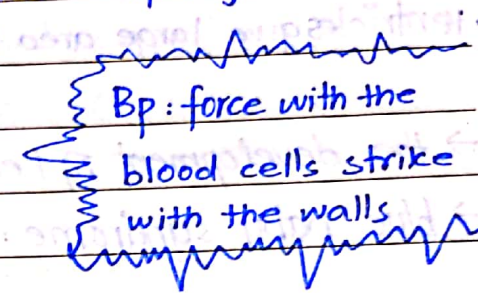 Bp : force with the
blood cells strike
with the walls